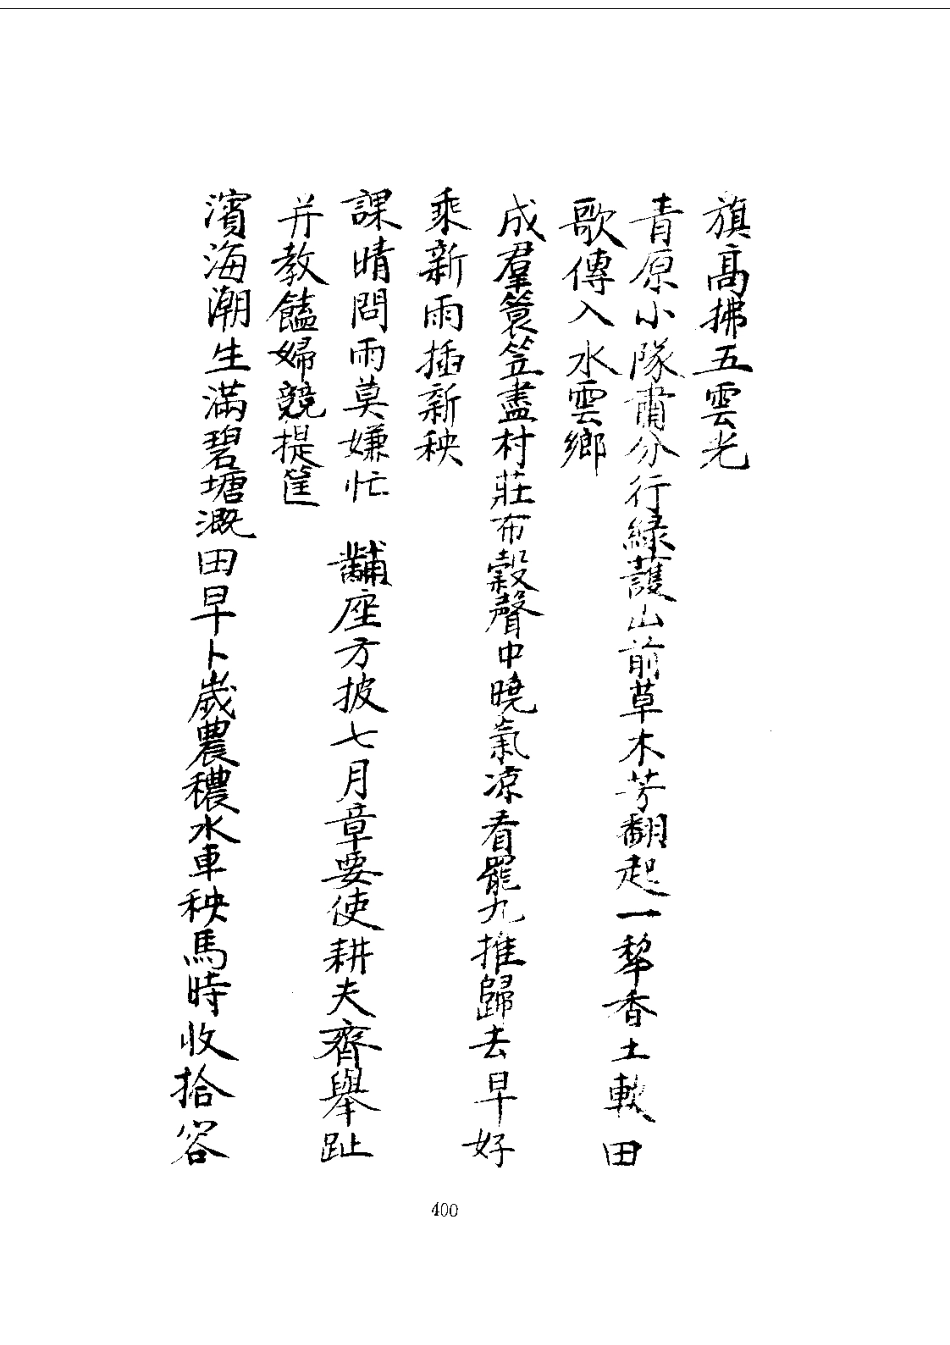 旗高拂五雲光
青原小隊肅分行綠護山前草木芳翻起一犂香土軟田
歌傳入水雲鄉
成羣簑笠盡村莊布穀聲中曉氣凉看罷九推歸去早好
乘新雨插新秧
課晴問雨莫嫌忙 黼座方披七月章要使耕夫齊舉趾
并教饁婦競提筐
濱海潮生滿碧塘溉田早卜歲農穠水車秧馬時收拾容
400